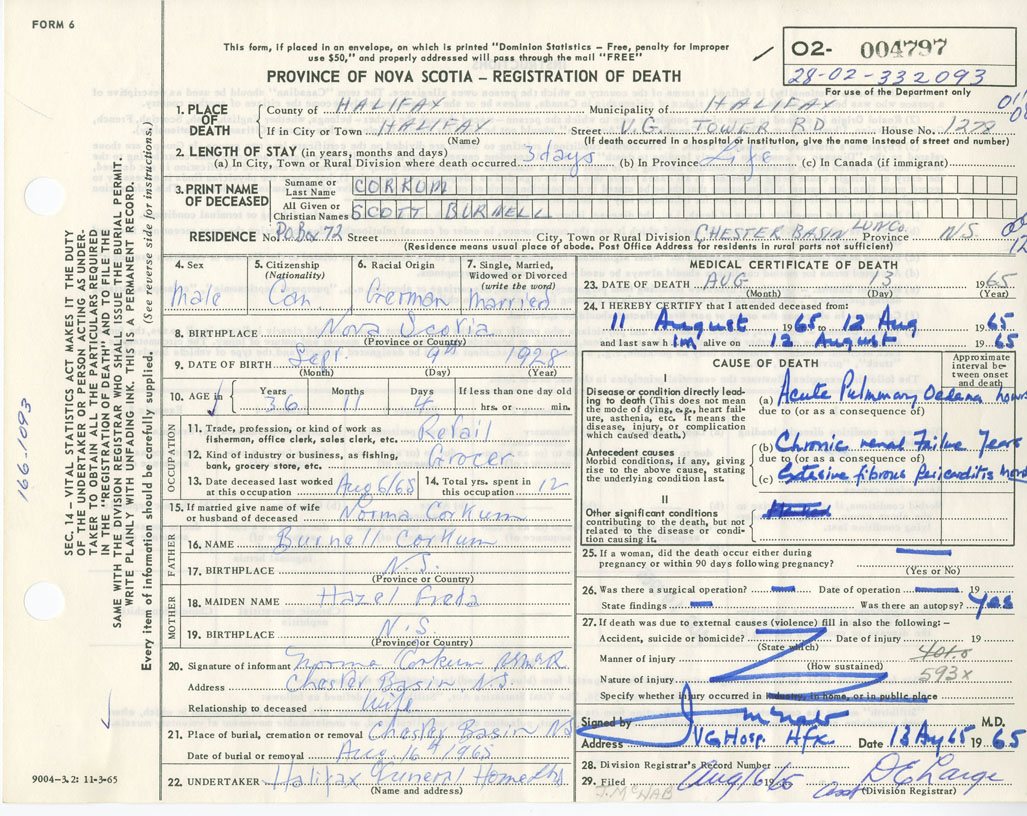 FORM 6
This form, if placed in an envelope, on which is printed "Dominion Statistics – Free, penalty for improper
use $50," and properly addressed will pass through the mail "FREE"
PROVINCE OF NOVA SCOTIA – REGISTRATION OF DEATH
02- 004797
28-02-332093
For use of the Department only
1. PLACE OF DEATH
County of HALIFAX Municipality of HALIFAX
If in City or Town HALIFAX Street V.G. TOWER RD House No. 1278
(Name) (If death occurred in a hospital or institution, give the name instead of street and number)
2. LENGTH OF STAY (in years, months and days)
(a) In City, Town or Rural Division where death occurred 3 days (b) In Province Life (c) In Canada (if immigrant)
3. PRINT NAME OF DECEASED
Surname or Last Name CORKUM
All Given or Christian Names SCOTT BURNELL
RESIDENCE No. P.O. Box 72 Street City, Town or Rural Division CHESTER BASIN LUN Co. Province N.S.
(Residence means usual place of abode. Post Office Address for residents in rural parts not sufficient)
4. Sex
Male
5. Citizenship (Nationality)
Can
6. Racial Origin
German
7. Single, Married, Widowed or Divorced (write the word)
Married
8. BIRTHPLACE Nova Scotia
(Province or Country)
9. DATE OF BIRTH Sept. 9th 1928
(Month) (Day) (Year)
10. AGE in Years Months Days If less than one day old
36 11 4 hrs. or min.
OCCUPATION
11. Trade, profession, or kind of work as fisherman, office clerk, sales clerk, etc. Retail
12. Kind of industry or business, as fishing, bank, grocery store, etc. Grocer
13. Date deceased last worked at this occupation Aug 6/65
14. Total yrs. spent in this occupation 12
15. If married give name of wife or husband of deceased Norma Corkum
FATHER
16. NAME Burnell Corkum
17. BIRTHPLACE N.S.
(Province or Country)
MOTHER
18. MAIDEN NAME Hazel Freda
19. BIRTHPLACE N.S.
(Province or Country)
20. Signature of informant Norma Corkum
Address Chester Basin N.S.
Relationship to deceased Wife
21. Place of burial, cremation or removal Chester Basin NS
Date of burial or removal Aug. 16th 1965
22. UNDERTAKER Halifax Funeral Home
(Name and address)
MEDICAL CERTIFICATE OF DEATH
23. DATE OF DEATH AUG 13 1965
(Month) (Day) (Year)
24. I HEREBY CERTIFY that I attended deceased from:
11 August 1965 to 12 Aug 1965
and last saw him alive on 12 August 1965
CAUSE OF DEATH
Approximate interval between onset and death
I
Disease or condition directly leading to death (This does not mean the mode of dying, e.g., heart failure, asthenia, etc. It means the disease, injury, or complication which caused death.)
(a) Acute Pulmonary Oedema hours
due to (or as a consequence of)
Antecedent causes
Morbid conditions, if any, giving rise to the above cause, stating the underlying condition last.
(b) Chronic renal Failure Years
due to (or as a consequence of)
(c) Extesive fibrous pericarditis
II
Other significant conditions
contributing to the death, but not related to the disease or condition causing it.
25. If a woman, did the death occur either during
pregnancy or within 90 days following pregnancy?
(Yes or No)
26. Was there a surgical operation? Date of operation 19
State findings Was there an autopsy? Yes
27. If death was due to external causes (violence) fill in also the following: –
Accident, suicide or homicide? Date of injury 19
(State which)
Manner of injury
(How sustained)
593x
Nature of injury
Specify whether injury occurred in industry, in home, or in public place
Signed by J McNab M.D.
Address VG Hosp. Hfx Date 13 Aug 65 1965
28. Division Registrar's Record Number
29. Filed Aug 16/65 19 D E Large
J. McNAB Asst (Division Registrar)
SEC. 14 – VITAL STATISTICS ACT MAKES IT THE DUTY
OF THE UNDERTAKER OR PERSON ACTING AS UNDER-
TAKER TO OBTAIN ALL THE PARTICULARS REQUIRED
IN THE "REGISTRATION OF DEATH" AND TO FILE THE
SAME WITH THE DIVISION REGISTRAR WHO SHALL ISSUE THE BURIAL PERMIT.
WRITE PLAINLY WITH UNFADING INK. THIS IS A PERMANENT RECORD.
Every item of information should be carefully supplied. (See reverse side for instructions.)
166-1093
9004-3.2: 11-3-65